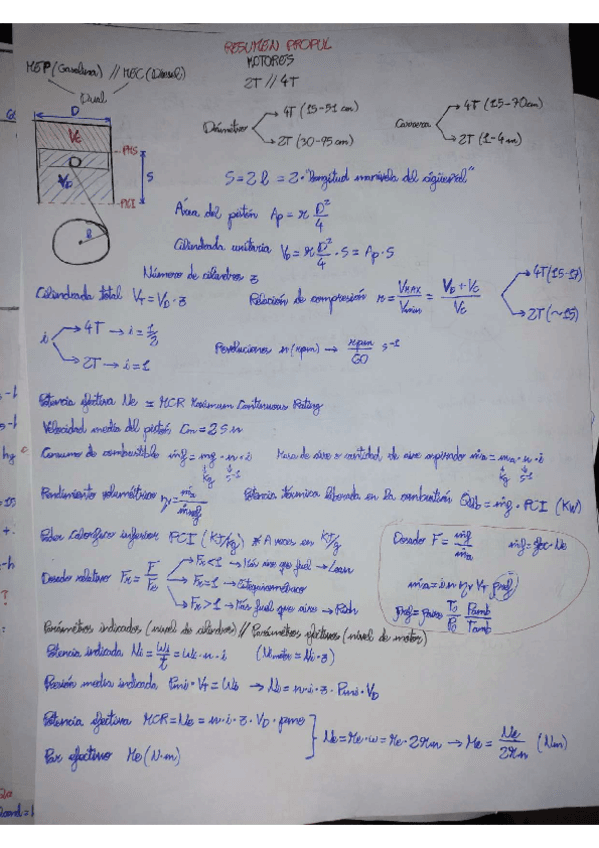 RESUMEN PROPUL
MOTORES
MEP (Gasolina) // MEC (Diésel)
Dual
2T // 4T
D
Vc
PMS
VD
S
PMI
R
Diámetro
4T (15-51 cm)
2T (30-95 cm)
Carrera
4T (15-70cm)
2T (1-4m)
S = 2 l = 2 · "longitud manivela del cigüeñal"
Área del pistón Ap = π D²/4
Cilindrada unitaria VD = π D²/4 · S = Ap · S
Número de cilindros z
Cilindrada total VT = VD · z
Relación de compresión r = VMAX/Vmin = (VD + Vc)/Vc
4T (15-17)
2T (~15)
i
4T → i = 1/2
2T → i = 1
Revoluciones n (rpm) → rpm/60 s⁻¹
Potencia efectiva Ne = MCR Maximum Continuous Rating
Velocidad media del pistón Cm = 2 S n
Consumo de combustible ṁf = mf · n · i
kg s⁻¹
Masa de aire o cantidad de aire aspirado ṁa = ma · n · i
kg s⁻¹
Rendimiento volumétrico ηv = ṁa/ṁref
Potencia térmica liberada en la combustión Qlib = ṁf · PCI (KW)
Poder Calorífico inferior PCI (KJ/kg) * A veces en KJ/g
Dosado F = ṁf/ṁa
ṁf = gec · Ne
Dosado relativo FR = F/Fe
FR < 1 → Más aire que fuel → Lean
FR = 1 → Estequiométrico
FR > 1 → Más fuel que aire → Rich
ṁa = i n ηv VT ρref
ρref = ρaire T0/P0 Pamb/Tamb
Parámetros indicados (nivel de cilindro) // Parámetros efectivos (nivel de motor)
Potencia indicada Ni = Wi/t = Wi · n · i (Nimotor = Ni · z)
Presión media indicada Pmi · VT = Wi → Ni = n · i · z · Pmi · VD
Potencia efectiva MCR = Ne = n · i · z · VD · pme
Par efectivo Me (N·m)
Ne = Me · w = Me · 2πn → Me = Ne/2πn (Nm)